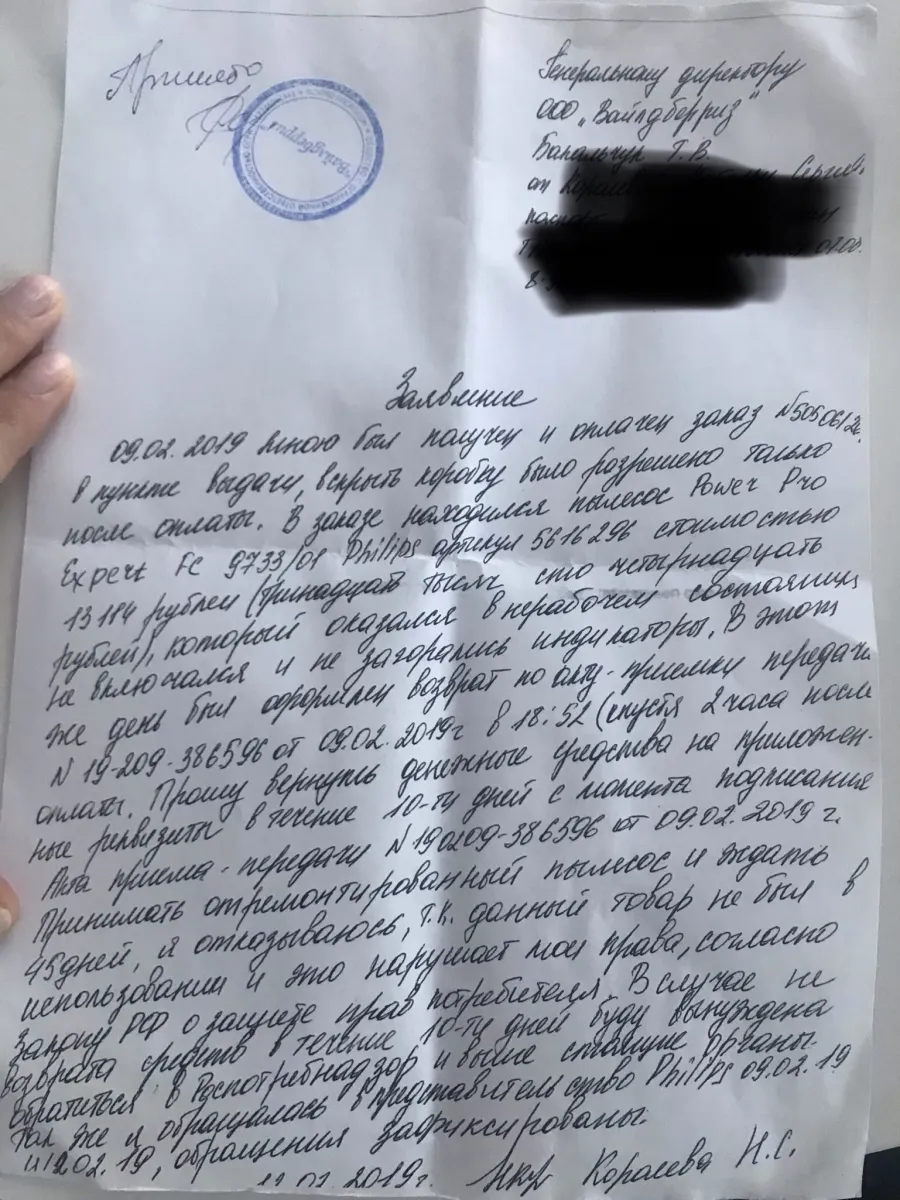 Принято
"Вайлдберриз"
Генеральному директору
ООО "Вайлдберриз"
Бакальчук Т.В.
от
паспорт
8-
Заявление
09.02.2019 мною был получен и оплачен заказ
в пункте выдачи, вскрыть коробку было разрешено только
после оплаты. В заказе находился пылесос Power Pro
Expert FC 9733/01 Philips артикул 5616296 стоимостью
13 114 рублей (тринадцать тысяч сто четырнадцать
рублей), который оказался в нерабочем состоянии,
не включался и не загорались индикаторы. В этот
же день был оформлен возврат по акту-приемки передачи
N 19-209-386596 от 09.02.2019г в 18:52 (спустя 2 часа после
оплаты. Прошу вернуть денежные средства на приложен-
ные реквизиты в течение 10-ти дней с момента подписания
Акта приема-передачи N190209-386596 от 09.02.2019 г.
Принимать отремонтированный пылесос и ждать
45 дней, я отказываюсь, т.к. данный товар не был в
использовании и это нарушает мои права, согласно
Закону РФ о защите прав потребителя. В случае не
возврата средств в течение 10-ти дней буду вынуждена
обратиться в Роспотребнадзор и выше стоящие органы.
Так же я обращалась в представительство Philips 09.02.19
и 12.02.19, обращения зафиксированы.
2019г. Королева Н.С.